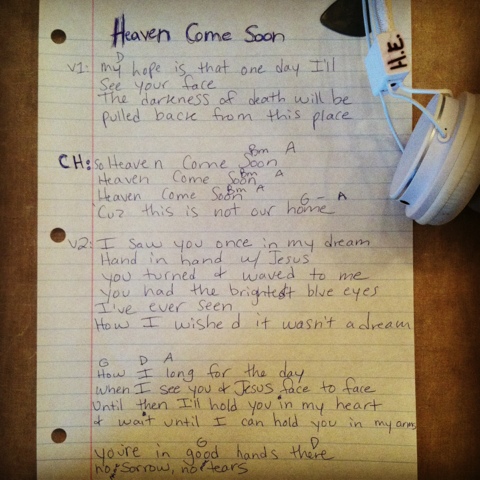 Heaven Come Soon
H.E.
D
V1: my hope is that one day I'll
See your face
The darkness of death will be
pulled back from this place
Bm A
CH: So Heaven Come Soon
Bm A
Heaven Come Soon
Bm A
Heaven Come Soon
G - A
'Cuz this is not our home
V2: I saw you once in my dream
Hand in hand w/ Jesus
you turned & waved to me
you had the brightest blue eyes
I've ever seen
How I wished it wasn't a dream
G D A
How I long for the day
when I see you & Jesus face to face
Until then I'll hold you in my heart
& wait until I can hold you in my arms
G D
you're in good hands there
no sorrow, no tears